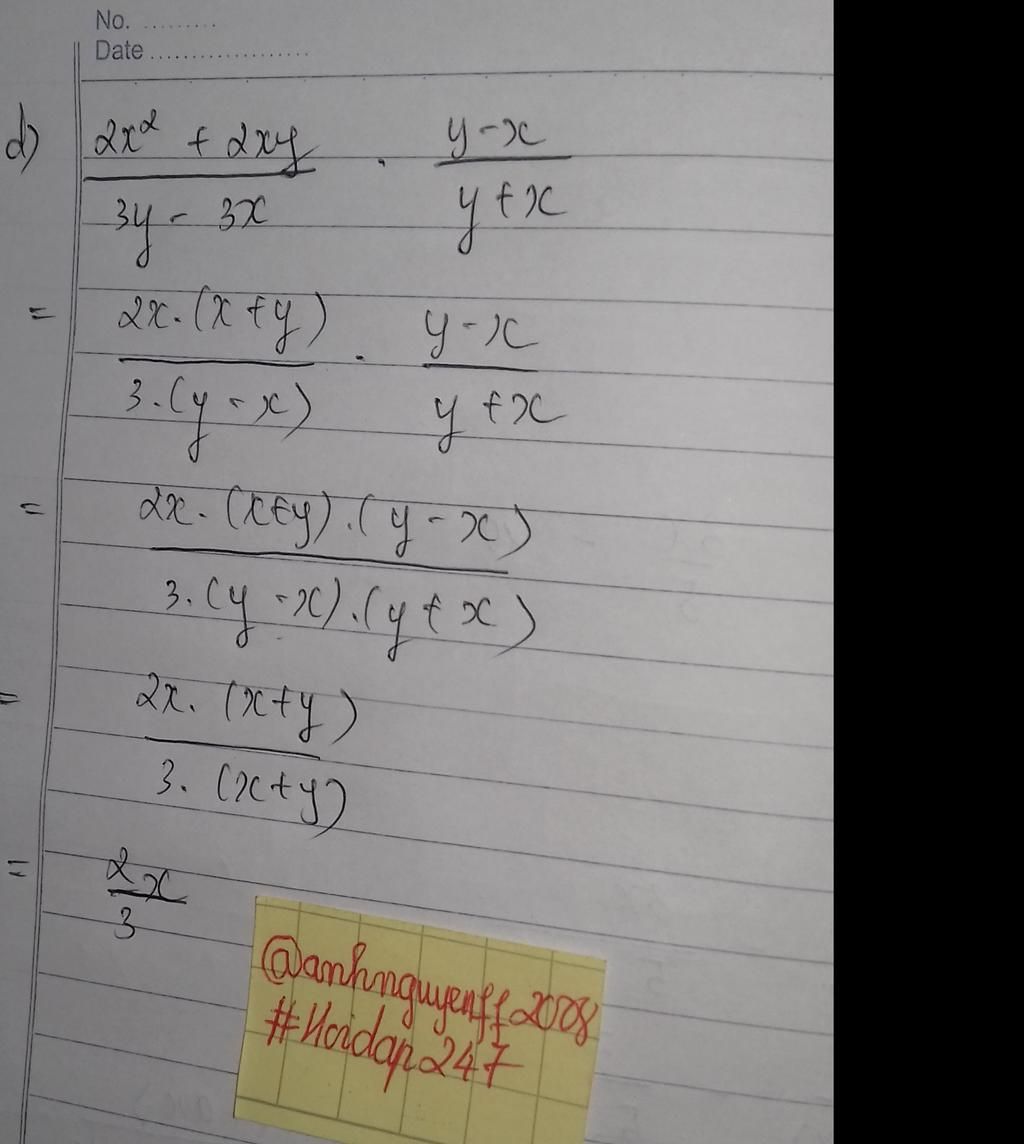 No. .........
Date ...................
d) \frac{2x^2 + 2xy}{3y - 3x} . \frac{y - x}{y + x}
= \frac{2x.(x+y)}{3.(y-x)} . \frac{y-x}{y+x}
= \frac{2x.(x+y).(y-x)}{3.(y-x).(y+x)}
= \frac{2x.(x+y)}{3.(x+y)}
= \frac{2x}{3}
@anhnguyenff2008
#Hoidap247